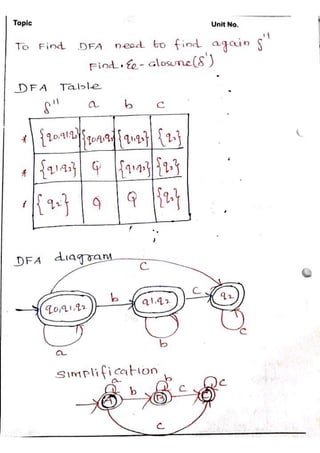 Topic Unit No.
To Find DFA need to find again δ''
Find . ε - closure(δ')
DFA Table
δ'' a b c
{q0,q1,q2} {q0,q1,q2} {q1,q2} {q2}
{q1,q2} φ {q1,q2} {q2}
{q2} φ φ {q2}
DFA diagram
c
q0,q1,q2 b q1,q2 c q2
a b c
simplification
a b c
A b B c C
c